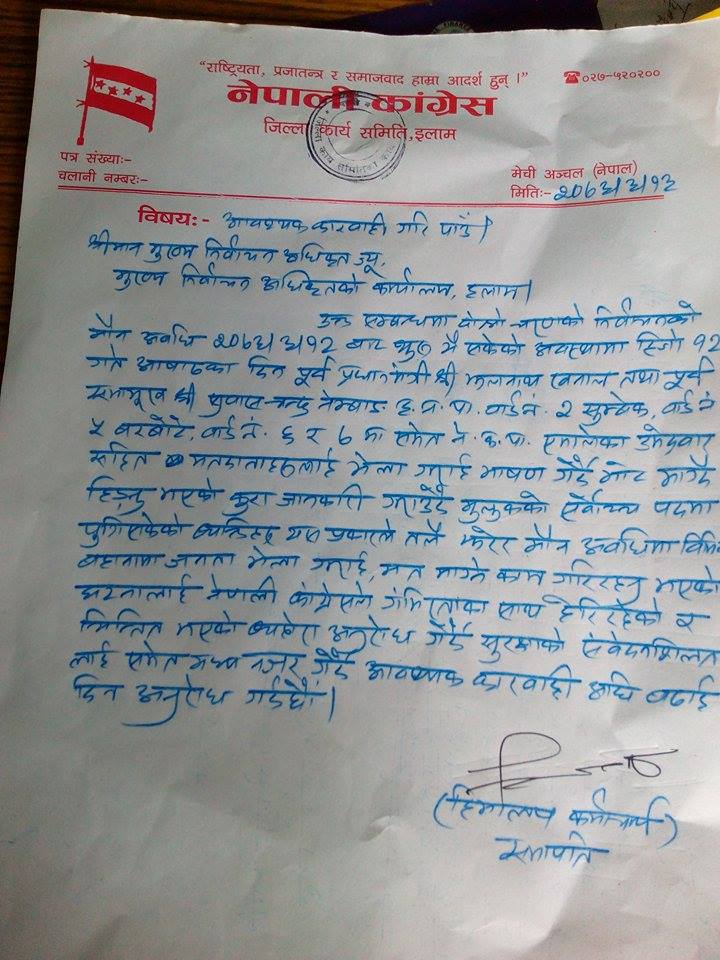 "राष्ट्रियता, प्रजातन्त्र र समाजवाद हाम्रा आदर्श हुन् ।"
☎०२७-५२०२००
नेपाली कांग्रेस
जिल्ला कार्य समिति, इलाम
पत्र संख्याः-
चलानी नम्बरः-
मेची अञ्चल (नेपाल)
मितिः- २०७४/३/१२
विषयः- आवश्यक कारवाही गरि पाउँ ।
श्रीमान मुख्य निर्वाचन अधिकृत ज्यू,
मुख्य निर्वाचन अधिकृतको कार्यालय, इलाम ।
उक्त सम्बन्धमा दोस्रो चरणको निर्वाचनको
मौन अवधि २०७४/३/१२ बाट शुरु भै सकेको अवस्थामा हिजो १२
गते आषाढका दिन पूर्व प्रधानमंत्री श्री झलनाथ खनाल तथा पूर्व
सभामुख श्री सुवास चन्द्र नेम्वाङ इ.न.पा. वार्ड नं. २ सुम्बेक, वार्ड नं
५ बरबोटे, वार्ड नं. ६ र ७ मा समेत ने.क.पा. एमालेका उमेदवार
सहित मतदाताहरुलाई भेला गराई भाषण गर्दै भोट माग्दै
हिड्नु भएको कुरा जानकारी गराउँदै मुलुकको सर्वोच्च पदमा
पुगिसकेको व्यक्तिहरु यस प्रकारले तलै झरेर मौन अवधिमा
बहानामा जनता भेला गराई, मत माग्ने काम गरिरहनु भएको
घटनालाई नेपाली कांग्रेसले गंभिरताका साथ हेरिरहेको र
चिन्तित भएको व्यहोरा अनुरोध गर्दै सुरक्षाको संवेदनशिलता
लाई समेत मध्य नजर गर्दै आवश्यक कारवाही अघि बढाई
दिन अनुरोध गर्दछौं ।
(हिमालय कर्माचार्य)
सभापति